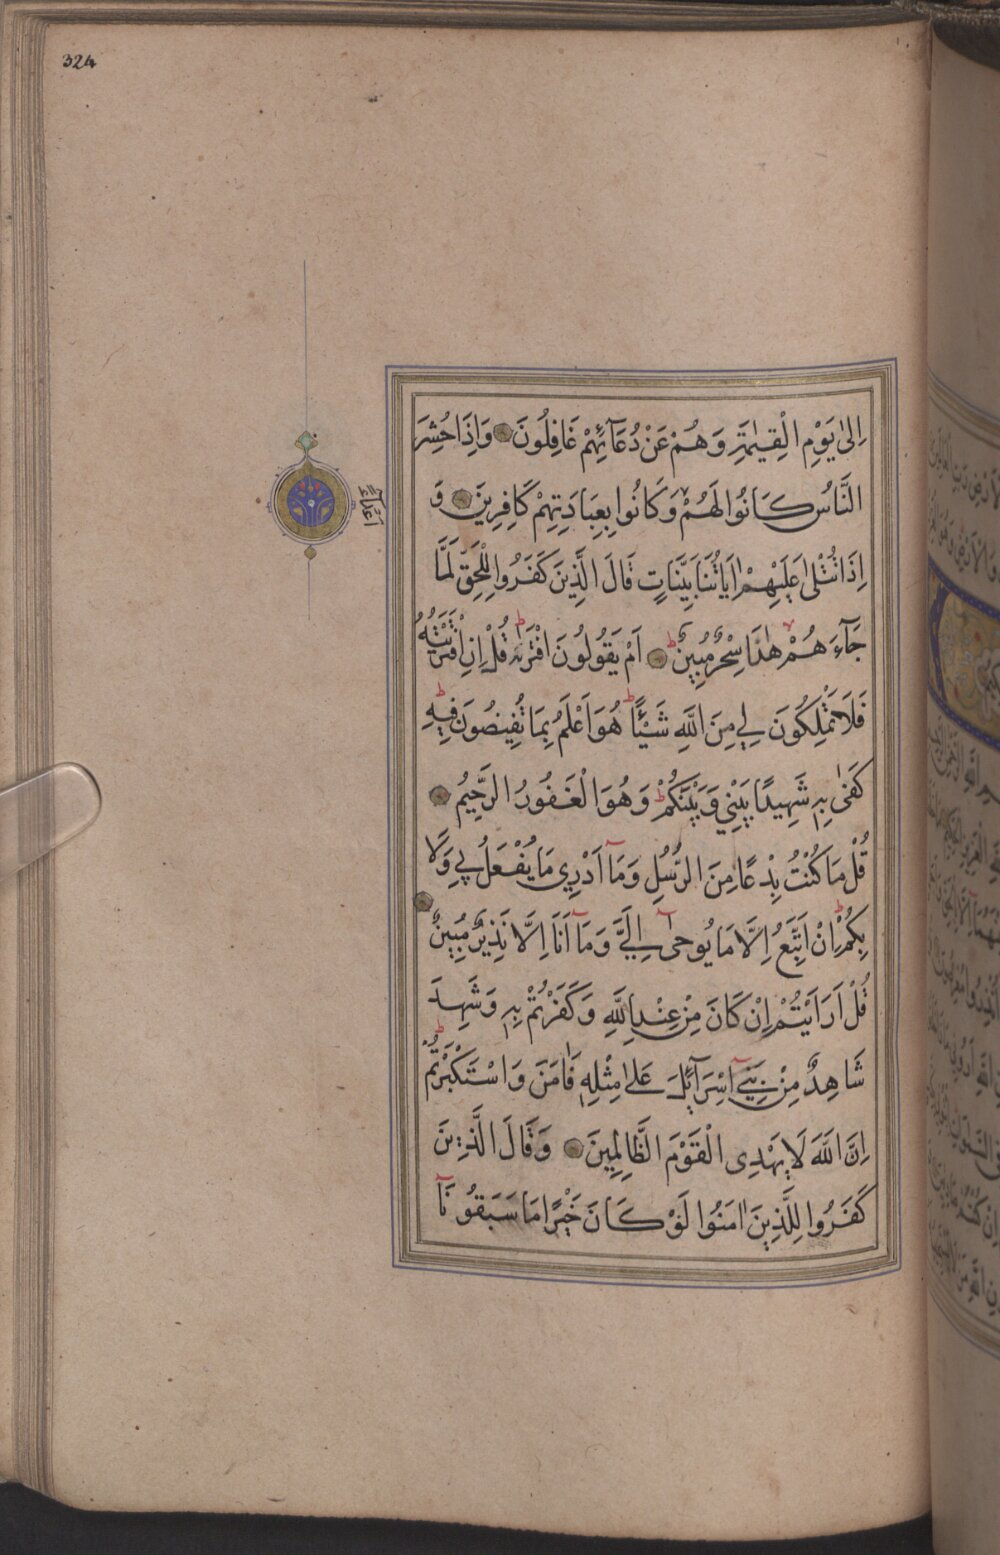 324
اِلىٰ يَوْمِ الْقِيٰمَةِ وَهُمْ عَنْ دُعَآئِهِمْ غَافِلُونَ وَاِذَا حُشِرَ
النَّاسُ كَانُوا لَهُمْ وَكَانُوا بِعِبَادَتِهِمْ كَافِرِينَ وَ
اَعْدَآءً
اِذَا تُتْلىٰ عَلَيْهِمْ اٰيَاتُنَا بَيِّنَاتٍ قَالَ الَّذِينَ كَفَرُوا لِلْحَقِّ لَمَّا
جَآءَهُمْ هٰذَا سِحْرٌ مُبِينٌ ط اَمْ يَقُولُونَ افْتَرٰيهُ ط قُلْ اِنِ افْتَرَيْتُهُ
فَلَا تَمْلِكُونَ لِي مِنَ اللّٰهِ شَيْئًا ط هُوَ اَعْلَمُ بِمَا تُفِيضُونَ فِيهِ ط
كَفٰى بِهِ شَهِيدًا بَيْنِي وَبَيْنَكُمْ ط وَهُوَ الْغَفُورُ الرَّحِيمُ
قُلْ مَا كُنْتُ بِدْعًا مِنَ الرُّسُلِ وَمَآ اَدْرِى مَا يُفْعَلُ بِي وَلَا
بِكُمْ ط اِنْ اَتَّبِعُ اِلَّا مَا يُوحىٰٓ اِلَيَّ وَمَآ اَنَا اِلَّا نَذِيرٌ مُبِينٌ
قُلْ اَرَاَيْتُمْ اِنْ كَانَ مِنْ عِنْدِ اللّٰهِ وَكَفَرْتُمْ بِهِ وَشَهِدَ
شَاهِدٌ مِنْ بَنِيٓ اِسْرَآئِلَ عَلىٰ مِثْلِهِ فَاٰمَنَ وَاسْتَكْبَرْتُمْ ط
اِنَّ اللّٰهَ لَا يَهْدِى الْقَوْمَ الظَّالِمِينَ وَقَالَ الَّذِينَ
كَفَرُوا لِلَّذِينَ اٰمَنُوا لَوْ كَانَ خَيْرًا مَا سَبَقُونَآ